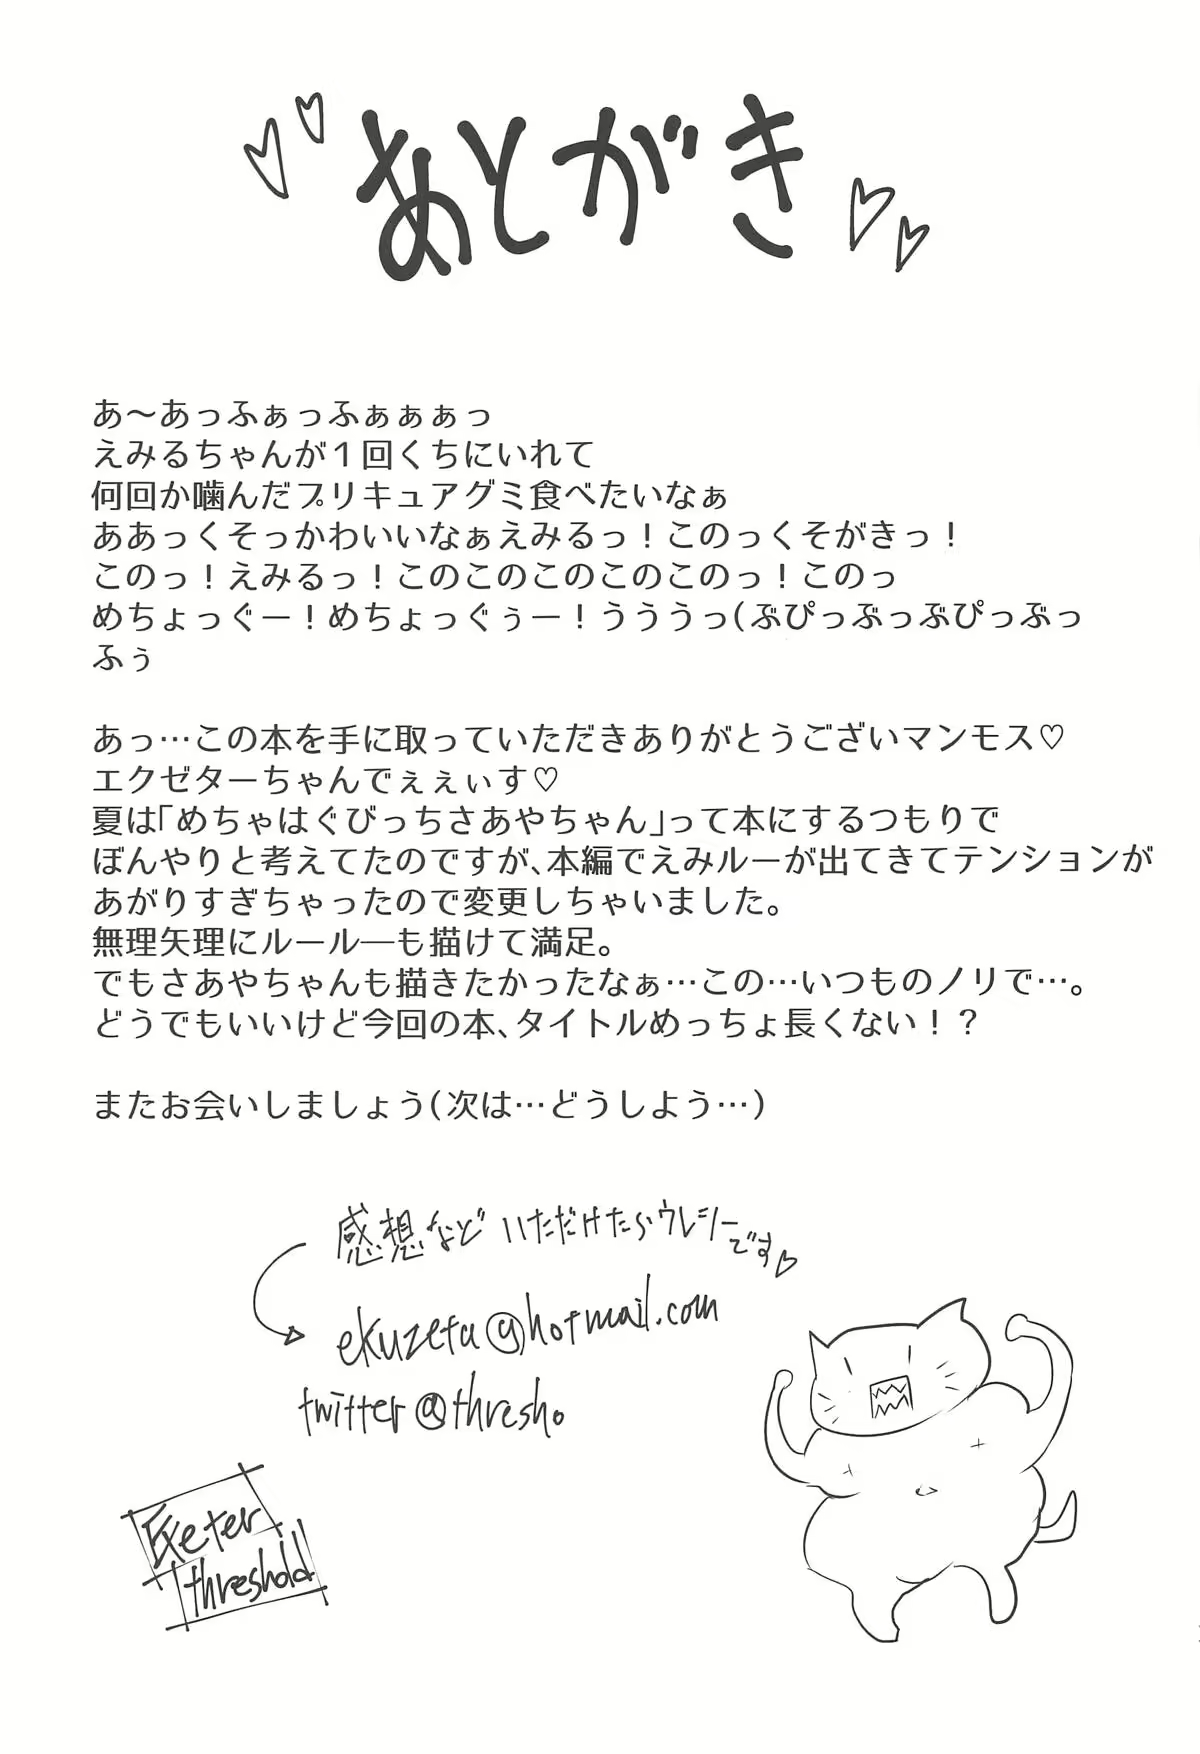 あとがき
あ～あっふぁっふぁぁぁっ
えみるちゃんが１回くちにいれて
何回か噛んだプリキュアグミ食べたいなぁ
ああっくそっかわいいなぁえみるっ！このっくそがきっ！
このっ！えみるっ！このこのこのこのこのっ！このっ
めちょっぐー！めちょっぐぅー！うううっ(ぶぴっぶっぶぴっぶっ
ふぅ
あっ…この本を手に取っていただきありがとうございマンモス♡
エクゼターちゃんでぇぇぃす♡
夏は「めちゃはぐびっちさあやちゃん」って本にするつもりで
ぼんやりと考えてたのですが、本編でえみルーが出てきてテンションが
あがりすぎちゃったので変更しちゃいました。
無理矢理にルールーも描けて満足。
でもさあやちゃんも描きたかったなぁ…この…いつものノリで…。
どうでもいいけど今回の本、タイトルめっちょ長くない！？
またお会いしましょう(次は…どうしよう…)
感想など いただけたらウレシーです♡
ekuzeta@hotmail.com
twitter@thresho
Exeter
threshold